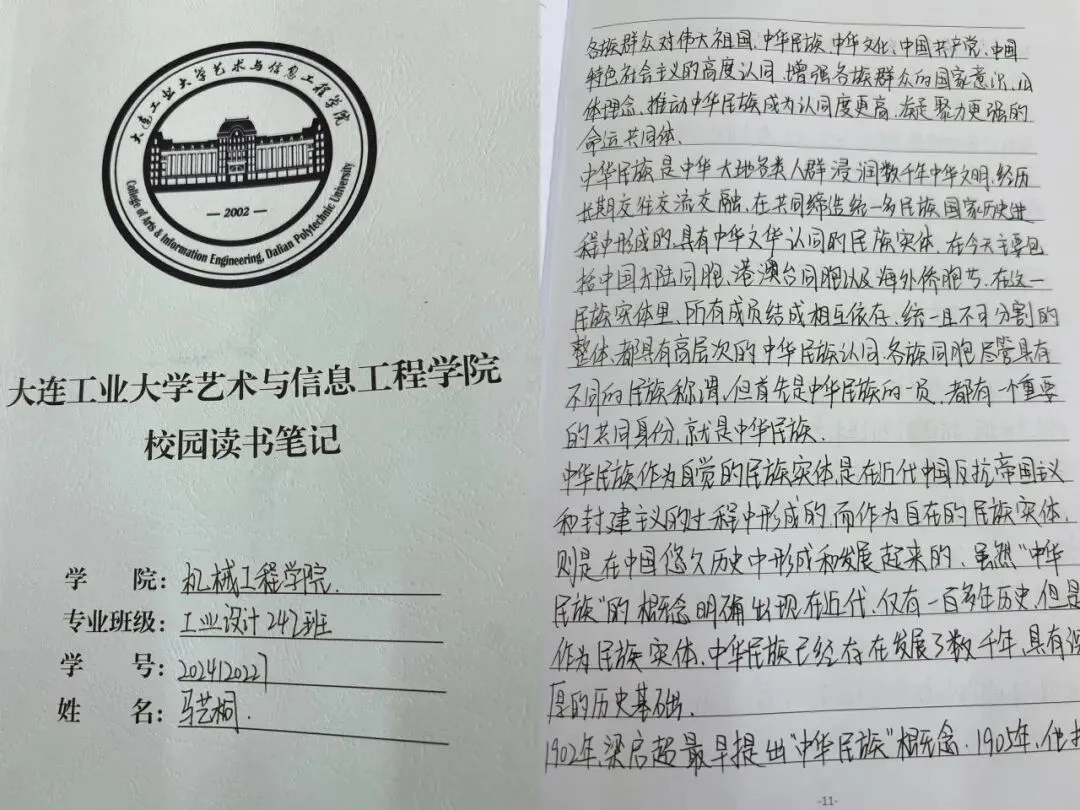 大连工业大学艺术与信息工程学院
2002
College of Arts & Information Engineering, Dalian Polytechnic University
大连工业大学艺术与信息工程学院
校园读书笔记
学 院: 机械工程学院
专业班级: 工业设计242班
学 号: 2024120227
姓 名: 马艺桐
各族群众对伟大祖国、中华民族、中华文化、中国共产党、中国
特色社会主义的高度认同,增强各族群众的国家意识、公
体理念,推动中华民族成为认同度更高,凝聚力更强的
命运共同体.
中华民族是中华大地各类人群浸润数千年中华文明,经历
长期交往交流交融,在共同缔造统一多民族国家历史进
程中形成的,具有中华文华认同的民族实体.在今天主要包
括中国大陆同胞、港澳台同胞以及海外侨胞节.在这一
民族实体里,所有成员结成相互依存、统一且不可分割的
整体,都具有高层次的中华民族认同,各族同胞尽管具有
不同的民族称谓,但首先是中华民族的一员,都有一个重要
的共同身份,就是中华民族.
中华民族作为自觉的民族实体,是在近代中国反抗帝国主义
和封建主义的过程中形成的,而作为自在的民族实体,
则是在中国悠久历史中形成和发展起来的.虽然“中华
民族”的概念明确出现在近代,仅有一百多年历史,但是
作为民族实体,中华民族已经存在发展了数千年,具有深
厚的历史基础.
1902年,梁启超最早提出“中华民族”概念.1905年,他
-11-